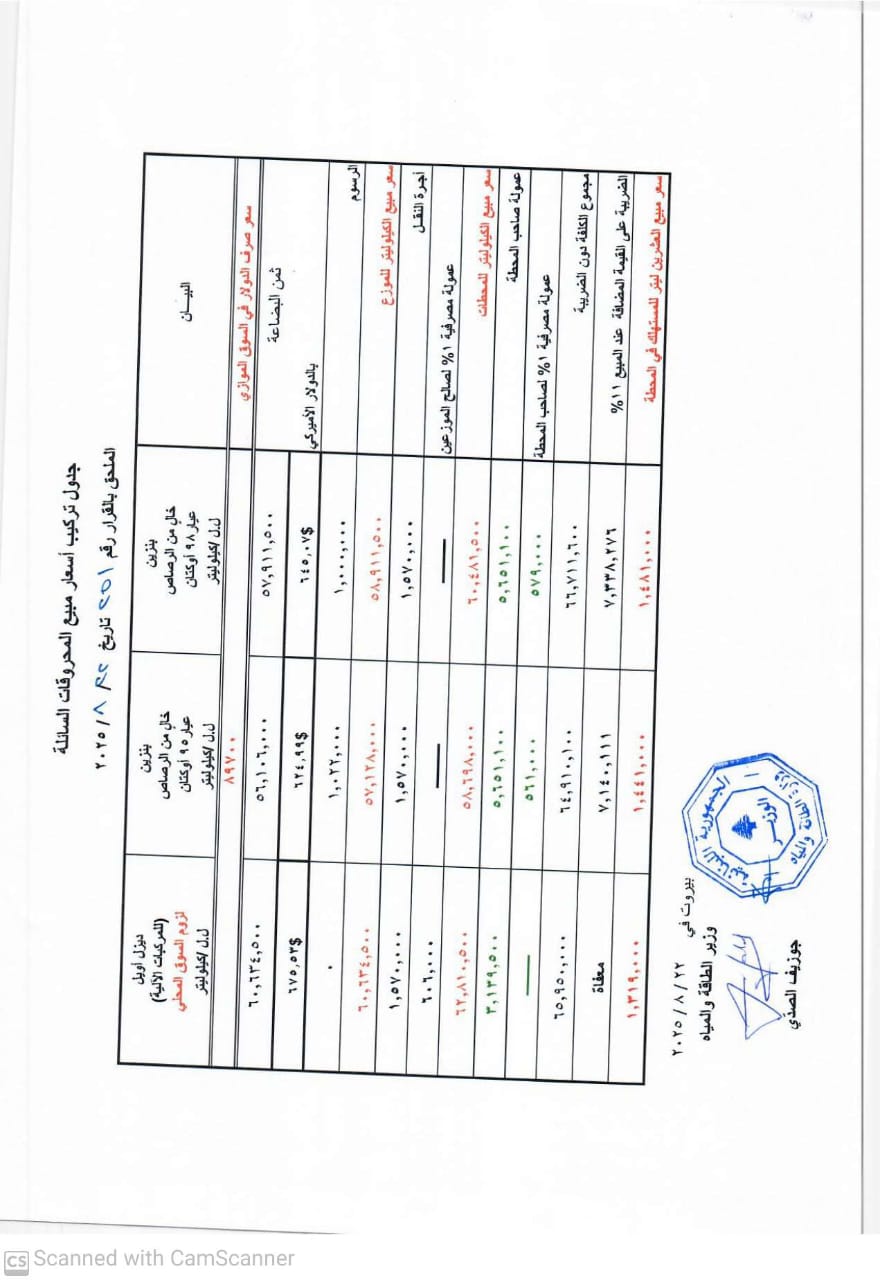 جدول تركيب أسعار مبيع المحروقات السائلة
الملحق بالقرار رقم ٢٥١ تاريخ ٢٢/ ٨ /٢٠٢٥
البيـــان
بنزين
خالٍ من الرصاص
عيار ٩٨ أوكتان
ل.ل/كيلوليتر
بنزين
خالٍ من الرصاص
عيار ٩٥ أوكتان
ل.ل/كيلوليتر
ديزل أويل
(للمركبات الآلية)
لزوم السوق المحلي
ل.ل/كيلوليتر
سعر صرف الدولار في السوق الموازي ٨٩٧٠٠
ثمن البضاعة ٥٧,٩١١,٥٠٠ ٥٦,١٠٦,٠٠٠ ٦٠,٦٣٤,٥٠٠
بالدولار الأميركي ٦٤٥,٠٧$ ٦٢٤,٩٩$ ٦٧٥,٥٣$
الرسوم ١,٠٠٠,٠٠٠ ١,٠٢٢,٠٠٠ ٠
سعر مبيع الكيلوليتر للموزع ٥٨,٩١١,٥٠٠ ٥٧,١٢٨,٠٠٠ ٦٠,٦٣٤,٥٠٠
أجرة النقـل ١,٥٧٠,٠٠٠ ١,٥٧٠,٠٠٠ ١,٥٧٠,٠٠٠
عمولة مصرفية ١% لصالح الموزعين — — ٦٠٦,٠٠٠
سعر مبيع الكيلوليتر للمحطات ٦٠,٤٨١,٥٠٠ ٥٨,٦٩٨,٠٠٠ ٦٢,٨١٠,٥٠٠
عمولة صاحب المحطة ٥,٦٥١,١٠٠ ٥,٦٥١,١٠٠ ٣,١٣٩,٥٠٠
عمولة مصرفية ١% لصاحب المحطة ٥٧٩,٠٠٠ ٥٦١,٠٠٠ —
مجموع الكلفة دون الضريبة ٦٦,٧١١,٦٠٠ ٦٤,٩١٠,١٠٠ ٦٥,٩٥٠,٠٠٠
الضريبة على القيمة المضافة عند المبيع ١١% ٧,٣٣٨,٢٧٦ ٧,١٤٠,١١١ معفاة
سعر مبيع العشرين ليتر للمستهلك في المحطة ١,٤٨١,٠٠٠ ١,٤٤١,٠٠٠ ١,٣١٩,٠٠٠
بيروت في ٢٠٢٥/٨/٢٢
وزير الطاقة والمياه
جوزيف الصدّي
الجمهورية اللبنانية
الوزير
وزارة الطاقة والمياه
CS Scanned with CamScanner